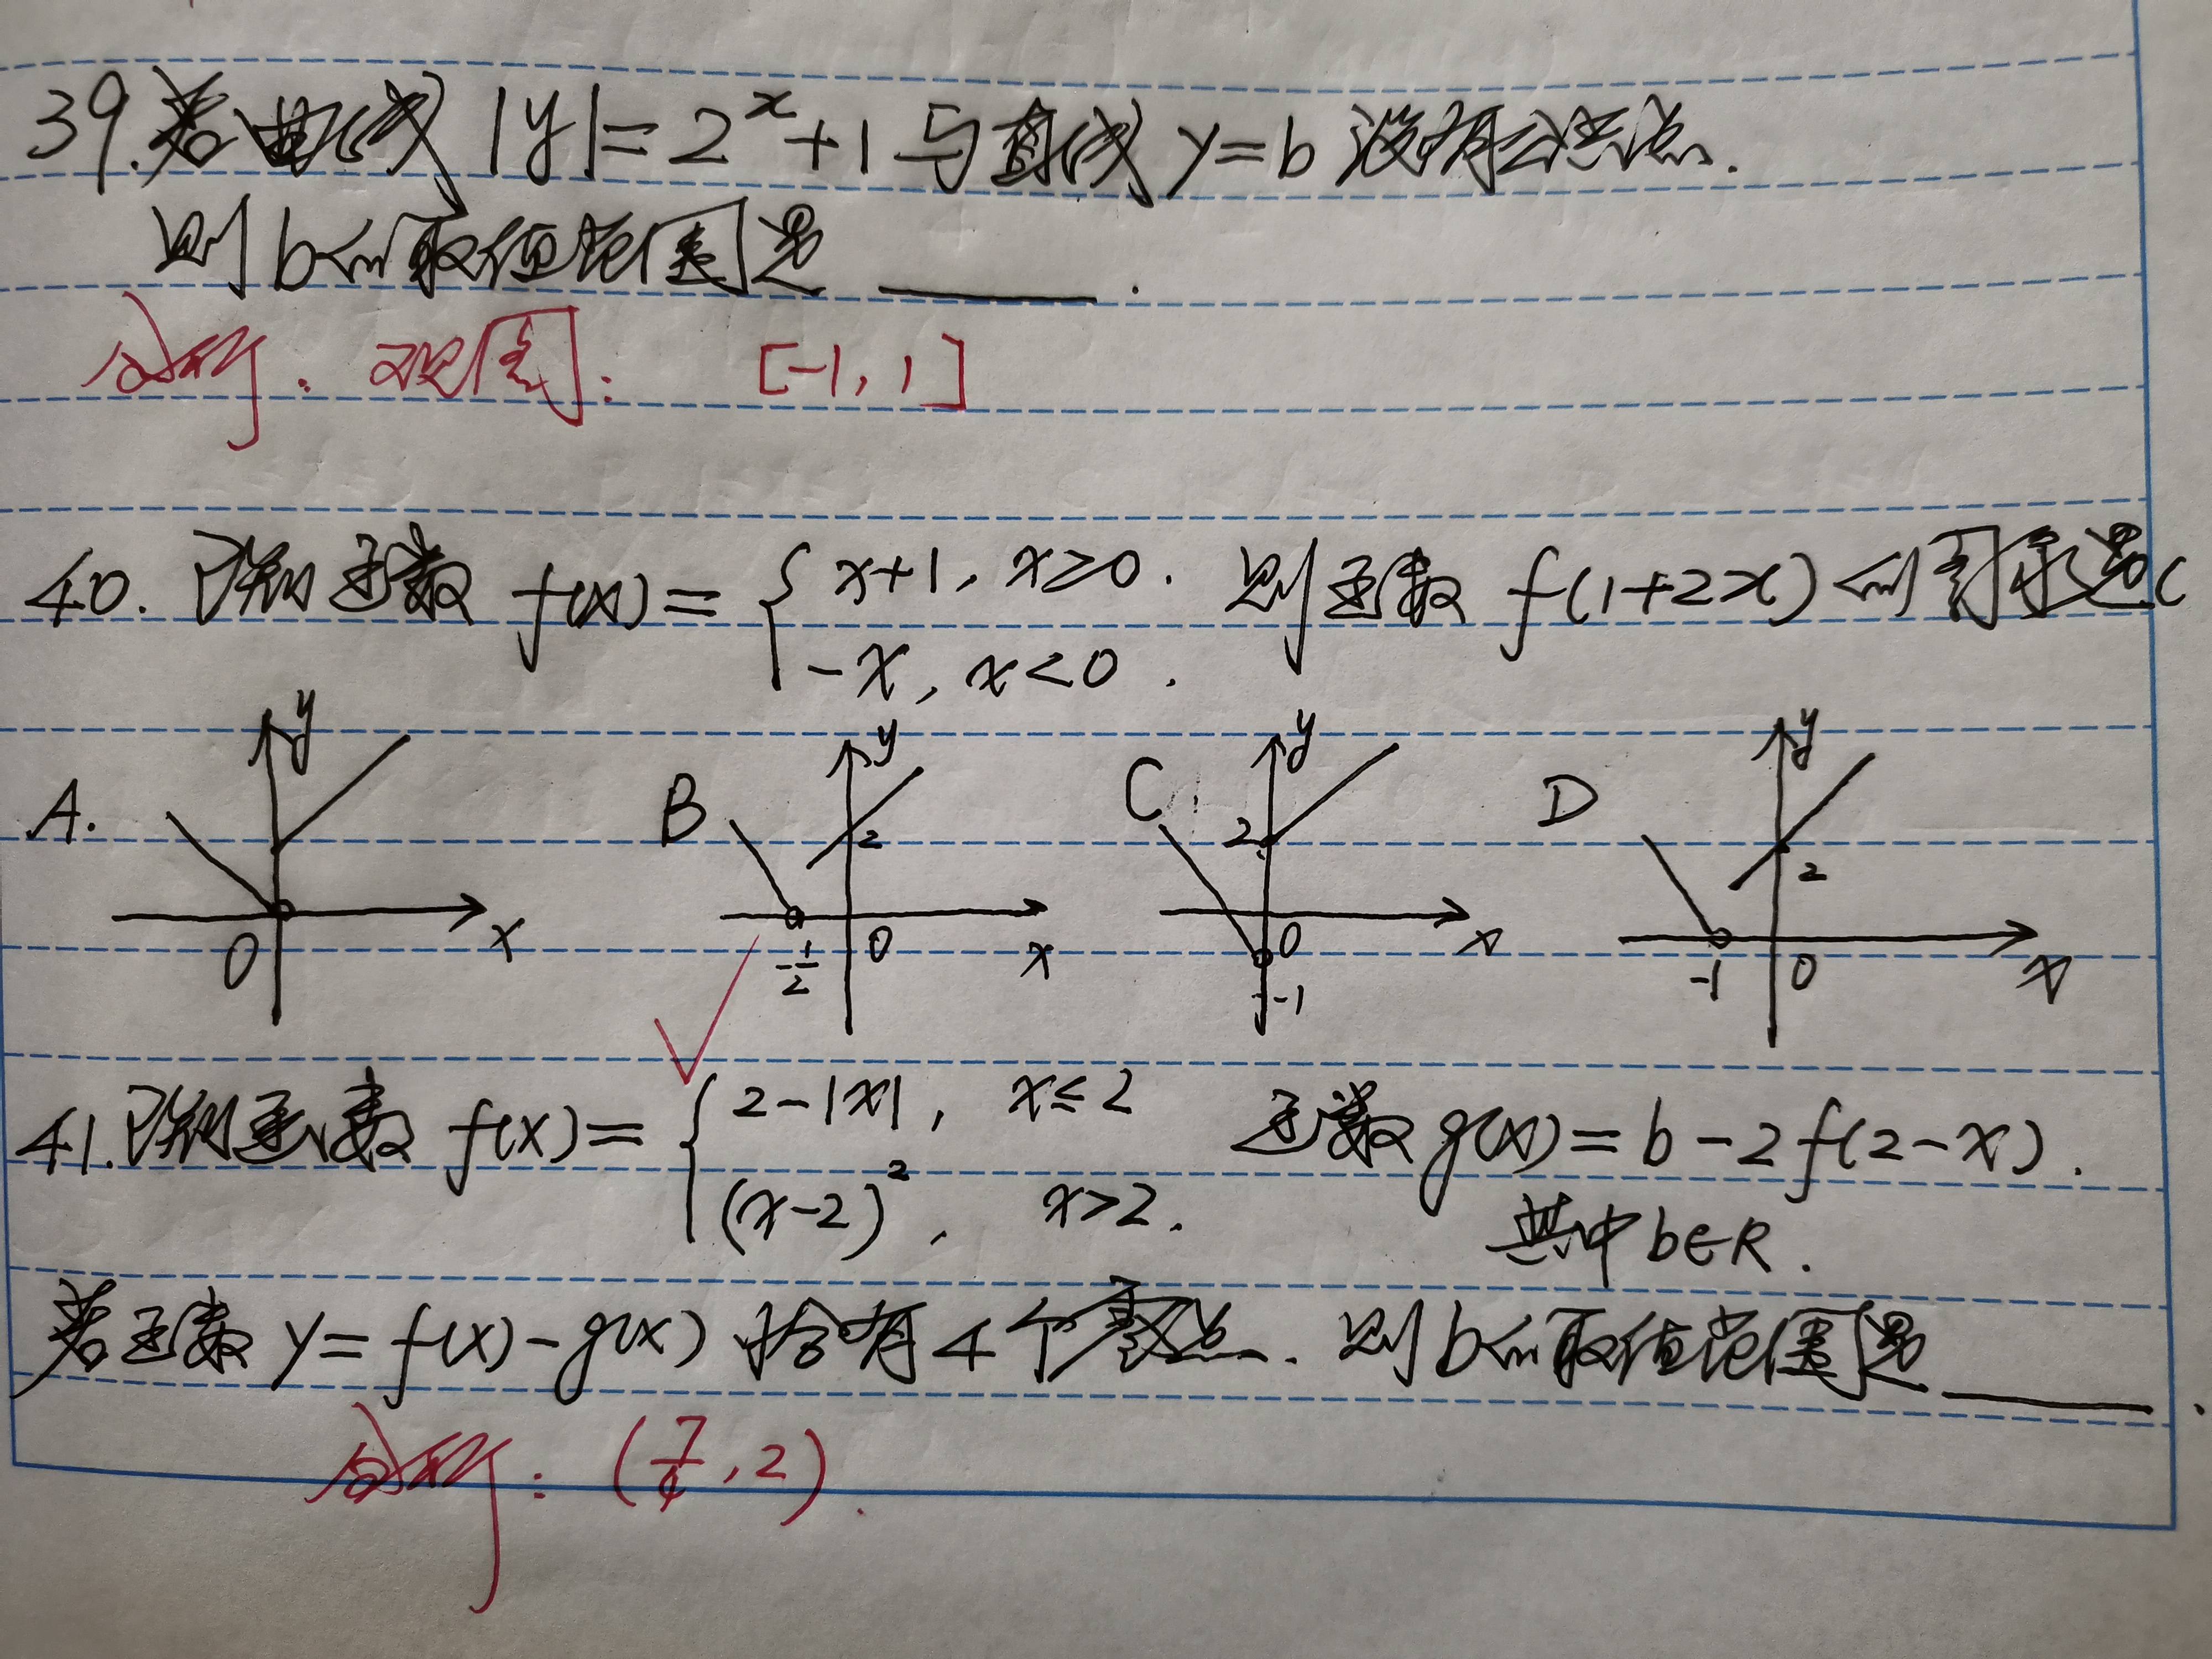 39.若曲线 |y|=2^x+1 与直线 y=b 没有公共点.
则b的取值范围是 ______.
分析:观图: [-1,1]
40.已知函数 f(x)={x+1,x≥0. 则函数 f(1+2x)的图象是(
-x,x<0.
A. y x O
B y 2 x -1/2 O
C y 2 x O -1
D y 2 x -1 O
41.已知函数 f(x)={2-|x|, x≤2 函数g(x)=b-2f(2-x).
(x-2)², x>2. 其中b∈R.
若函数 y=f(x)-g(x) 恰有4个零点.则b的取值范围是______.
分析:(7/4,2).